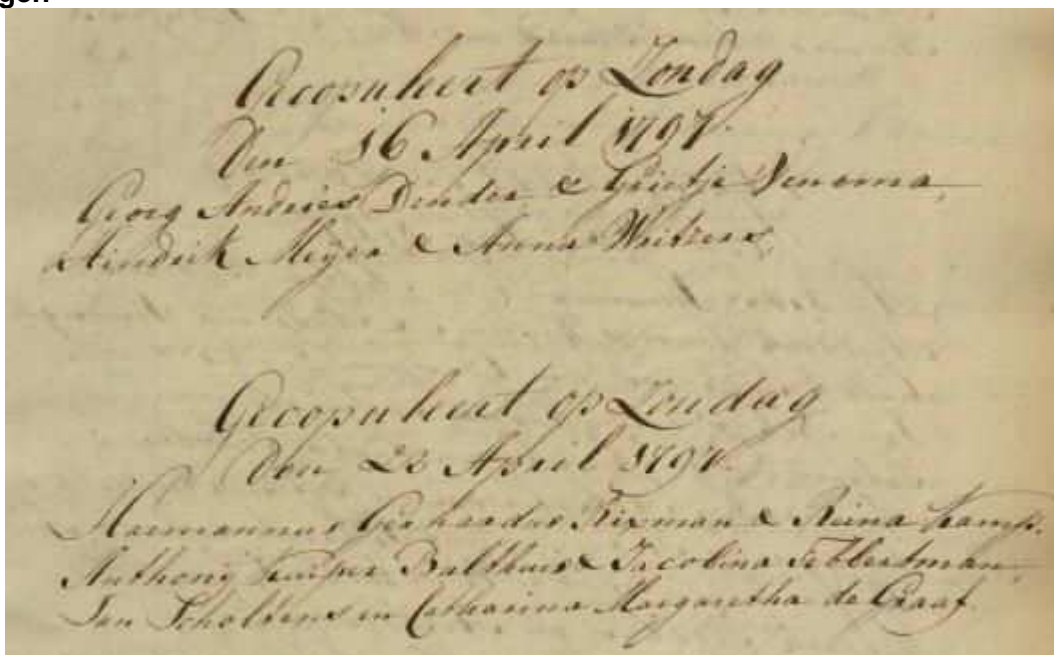 Geopenbeert op Zondag
Den 16 April 1797.
Georg Andries Dender & Grietje Venema,
Hindrik Meyer & Anna Weitzers,
Geopenbeert op Zondag
Den 23 April 1797.
Harmannus Gerhardus Fixman & Reina Kamp.
Anthony Kuiper Balthuis & Jacolina Tebbertman,
Jan Scholtens en Catharina Margaretha de Graaf